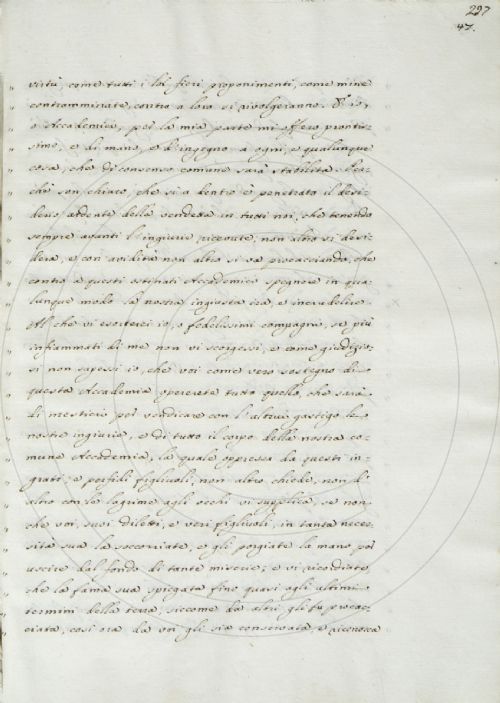 297
47.
„ virtù, come tutti i lor fieri proponimenti, come mine
„ contromminate, contro a loro si rivolgeranno. E io,
„ o Accademici, per la mia parte mi offero prontis-
„ simo, e di mano, e d'ingegno a ogni, e qualunque
„ cosa, che di consenso comune sarà stabilita. Per-
„ chè son chiaro, che sì a dentro è penetrato il desi-
„ derio ardente della vendetta in tutti noi, che tenendo
„ sempre avanti l'ingiurie ricevute, non altro si desi-
„ dera, e con avidità non altro si va procacciando, che
„ contro a questi ostinati Accademici spegnere in qua-
„ lunque modo la nostra ingiusta ira, e incrudelire.
„ Al che vi esorterei io, o fedelissimi compagni, se più
„ infiammati di me non vi scorgessi, e come giudizio-
„ si non sapessi io, che voi come vero sostegno di
„ questa Accademia, opererete tutto quello, che sarà
„ di mestiero per vendicare con l'altrui gastigo le
„ nostre ingiurie, e di tutto il corpo della nostra co-
„ mune Accademia, la quale oppressa da questi in-
„ grati, e perfidi figliuoli, non altro chiede, non d'
„ altro con le lagrime agli occhi vi supplica, se non
„ che voi, suoi diletti, e veri figliuoli, in tanta neces-
„ sità sua la soccorriate, e gli porgiate la mano, per
„ uscire dal fondo di tante miserie; e vi ricordiate,
„ che la fama sua spiegata fino quasi agli ultimi
„ termini della terra, siccome da altri gli fu procac-
„ ciata, così ora da voi gli sia conservata, e riconosca